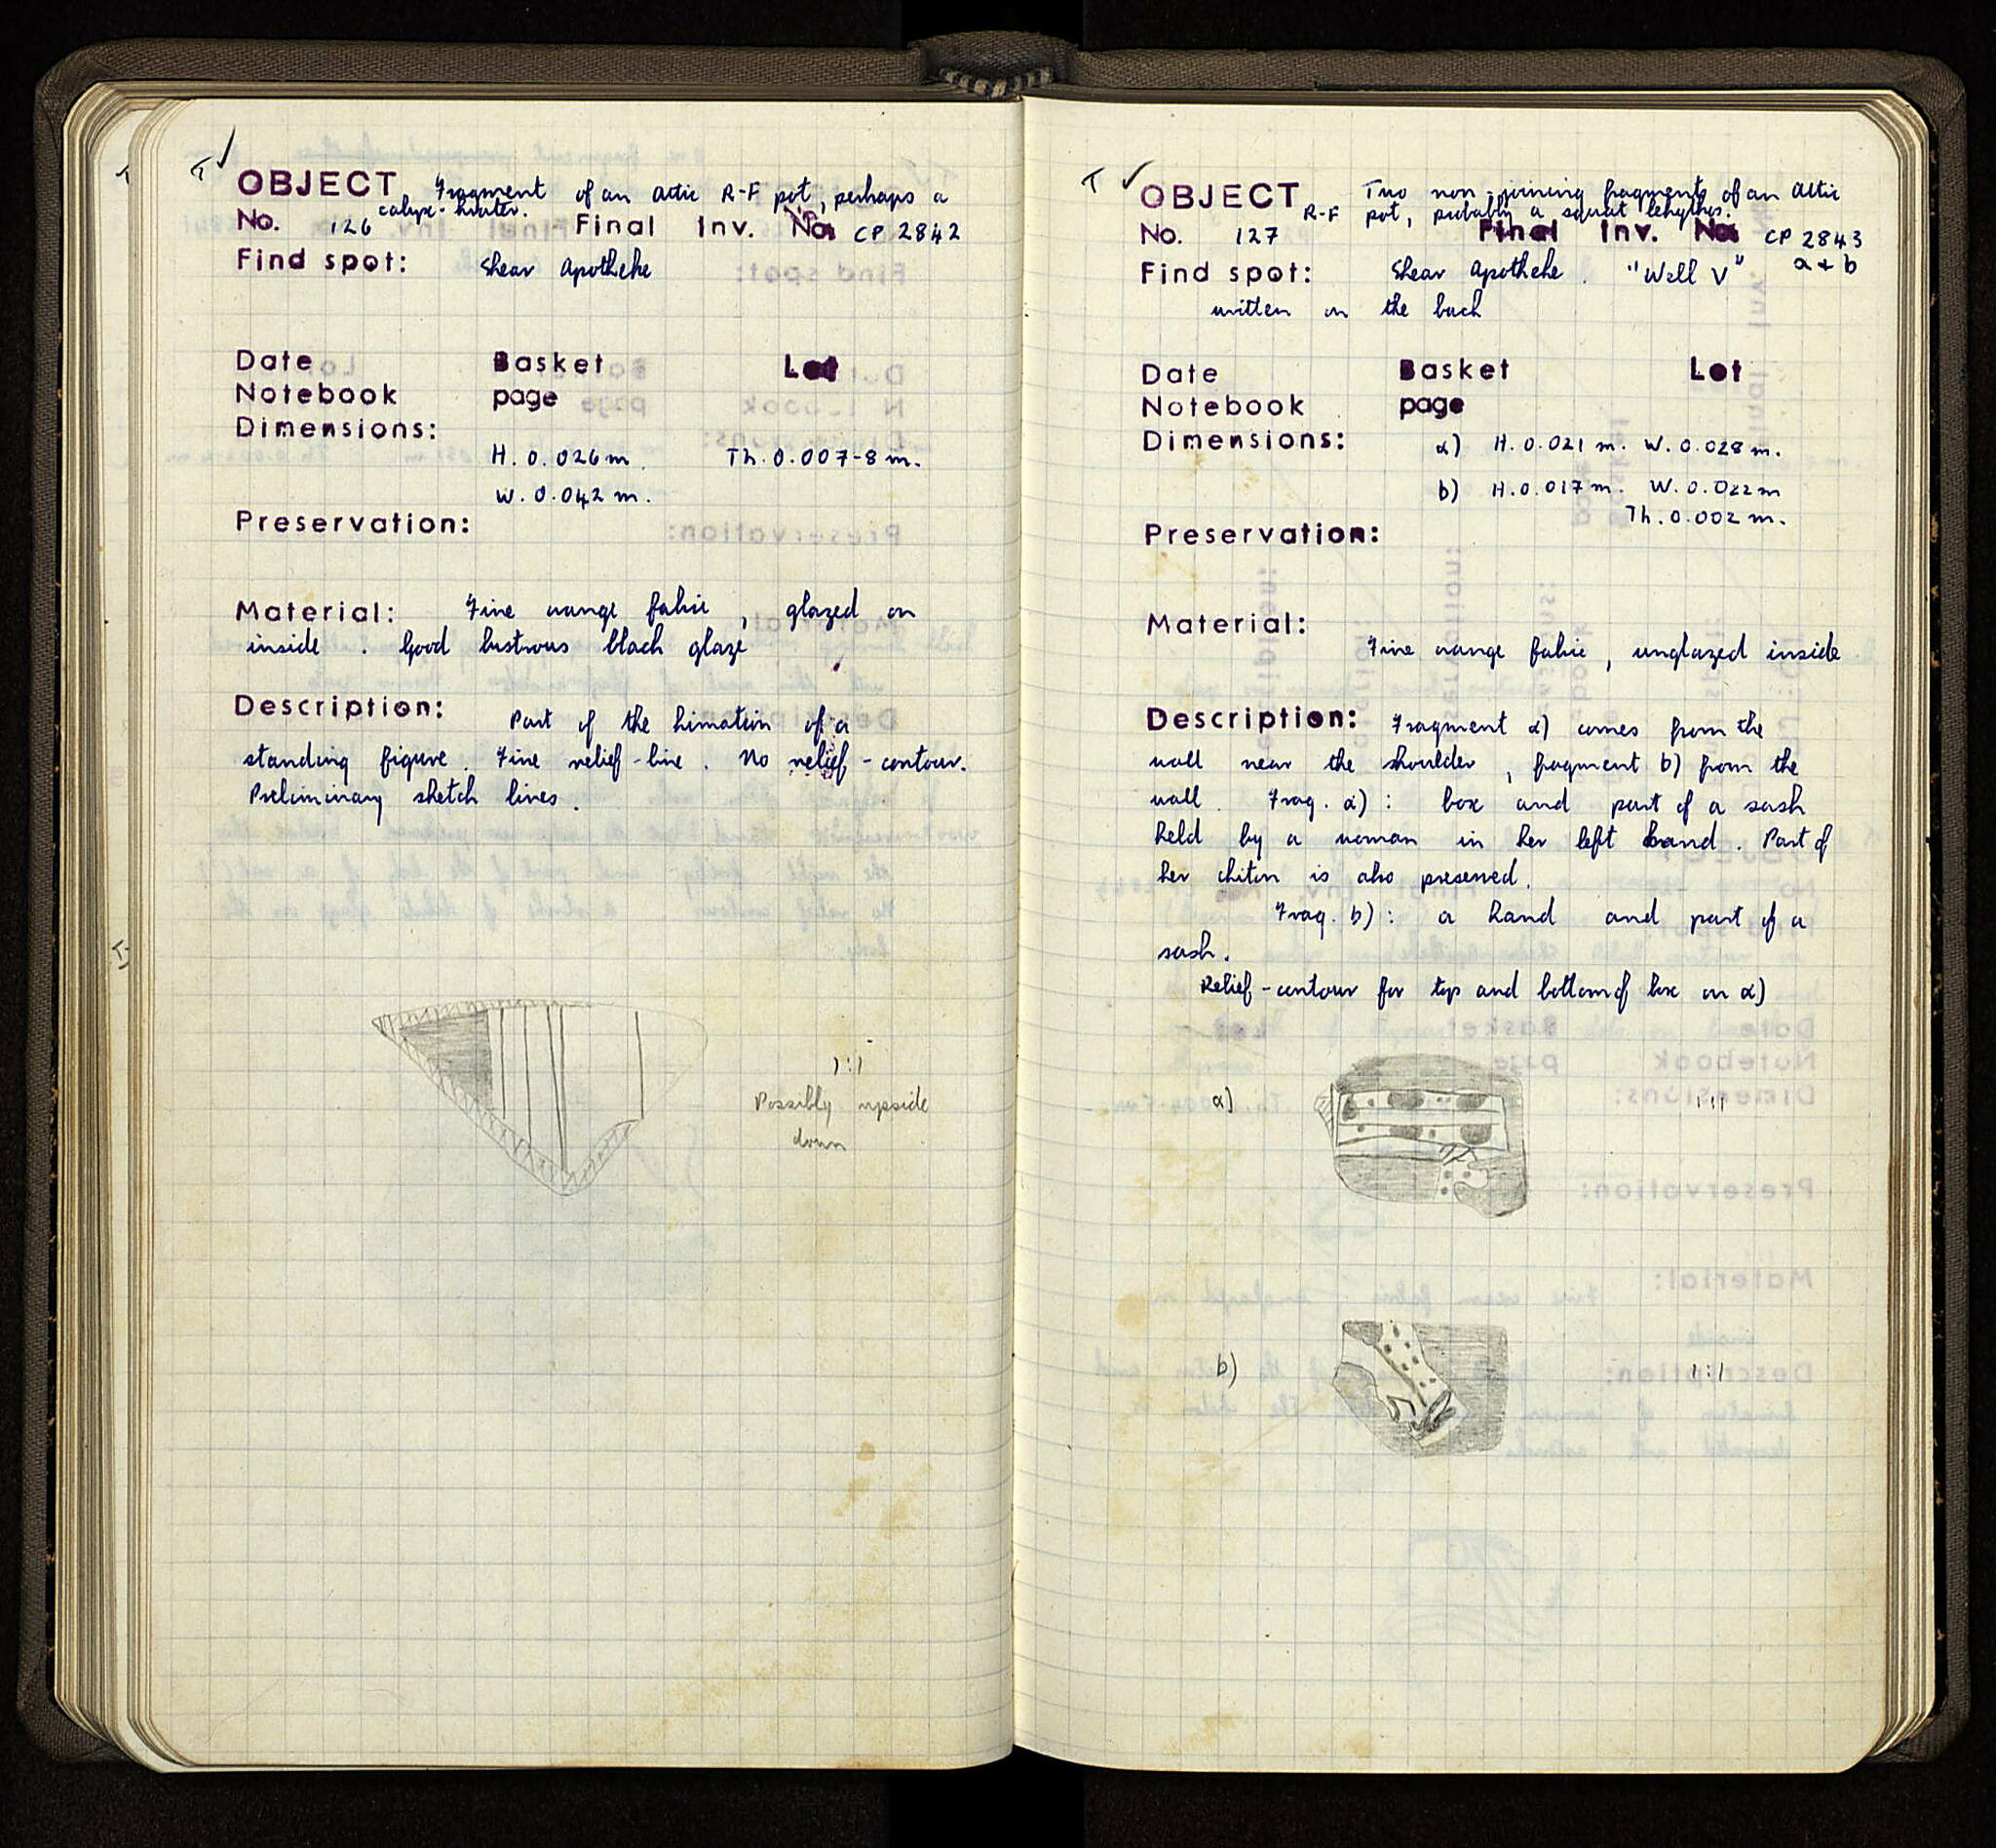 T ✓
OBJECT Fragment of an Attic R-F pot, perhaps a
calyx-krater.
No. 126 Final Inv. No. CP 2842
Find spot: Shear Apotheke
Date Basket Lot
Notebook page
Dimensions:
H. 0.026 m. Th. 0.007-8 m.
W. 0.042 m.
Preservation:
Material: Fine orange fabric, glazed on
inside. Good lustrous black glaze
Description: Part of the himation of a
standing figure. Fine relief-line. No relief-contour.
Preliminary sketch lines.
1:1
Possibly upside
down
T ✓
OBJECT Two non-joining fragments of an Attic
R-F pot, probably a squat lekythos.
No. 127 Final Inv. No. CP 2843
a + b
Find spot: Shear Apotheke. "Well V"
written on the back
Date Basket Lot
Notebook page
Dimensions: a) H. 0.021 m. W. 0.028 m.
b) H. 0.017 m. W. 0.022 m
Th. 0.002 m.
Preservation:
Material:
Fine orange fabric, unglazed inside
Description: Fragment a) comes from the
wall near the shoulder, fragment b) from the
wall. Frag. a): box and part of a sash
held by a woman in her left hand. Part of
her chiton is also preserved.
Frag. b): a hand and part of a
sash.
Relief-contour for top and bottom of box on a)
a) 1:1
b) 1:1